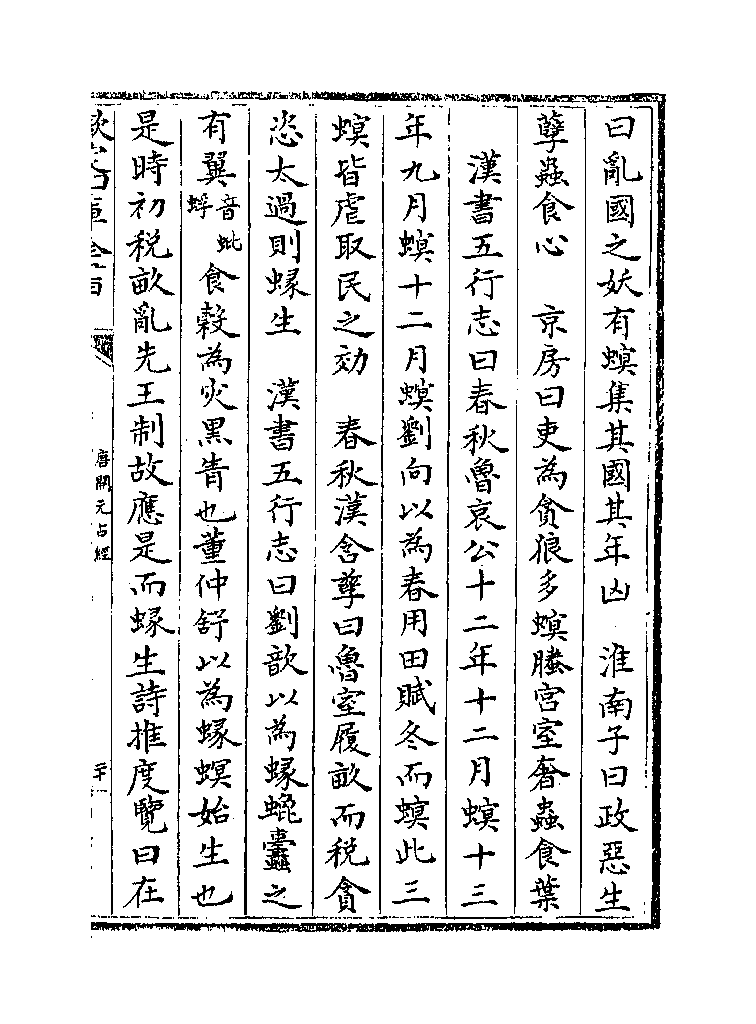 曰亂國之妖有螟集其國其年凶 淮南子曰政惡生
孽蟲食心 京房曰吏為貪狼多螟螣宮室奢蟲食葉
漢書五行志曰春秋魯哀公十二年十二月螟十三
年九月螟十二月螟劉向以為春用田賦冬而螟此三
螟皆虐取民之効 春秋漢含孳曰魯室履畝而稅貪
恣太過則蝝生 漢書五行志曰劉歆以為蝝螕蠹之
有翼音蚍蜉食穀為災黑眚也董仲舒以為蝝螟始生也
是時初稅畝亂先王制故應是而蝝生詩推度覽曰在
唐開元占經